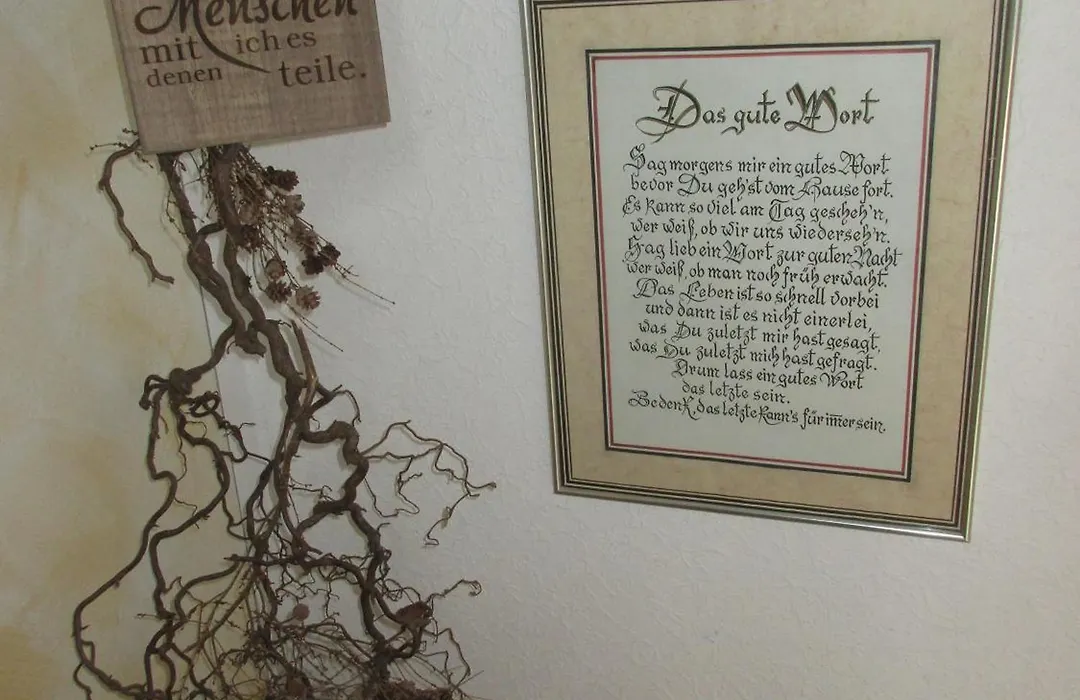 Menschen
mit ich es
denen teile.
Das gute Wort
Sag morgens mir ein gutes Wort
bevor Du geh'st vom Hause fort.
Es kann so viel am Tag gescheh'n,
wer weiß, ob wir uns wiederseh'n.
Sag lieb ein Wort zur guten Nacht
wer weiß, ob man noch früh erwacht.
Das Leben ist so schnell vorbei
und dann ist es nicht einerlei,
was Du zuletzt mir hast gesagt,
was Du zuletzt mich hast gefragt.
Drum lass ein gutes Wort
das letzte sein.
Bedenk, das letzte kann's für im̅er sein.